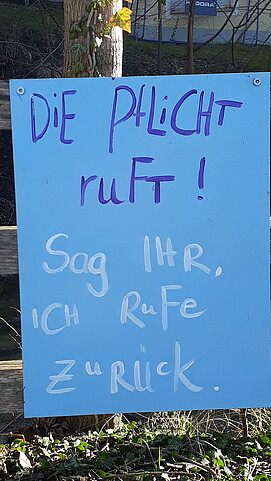 PANDORA
DiE PfLiCHT
ruFT !
Sag IHR,
ICH RuFe
ZuRÜck.